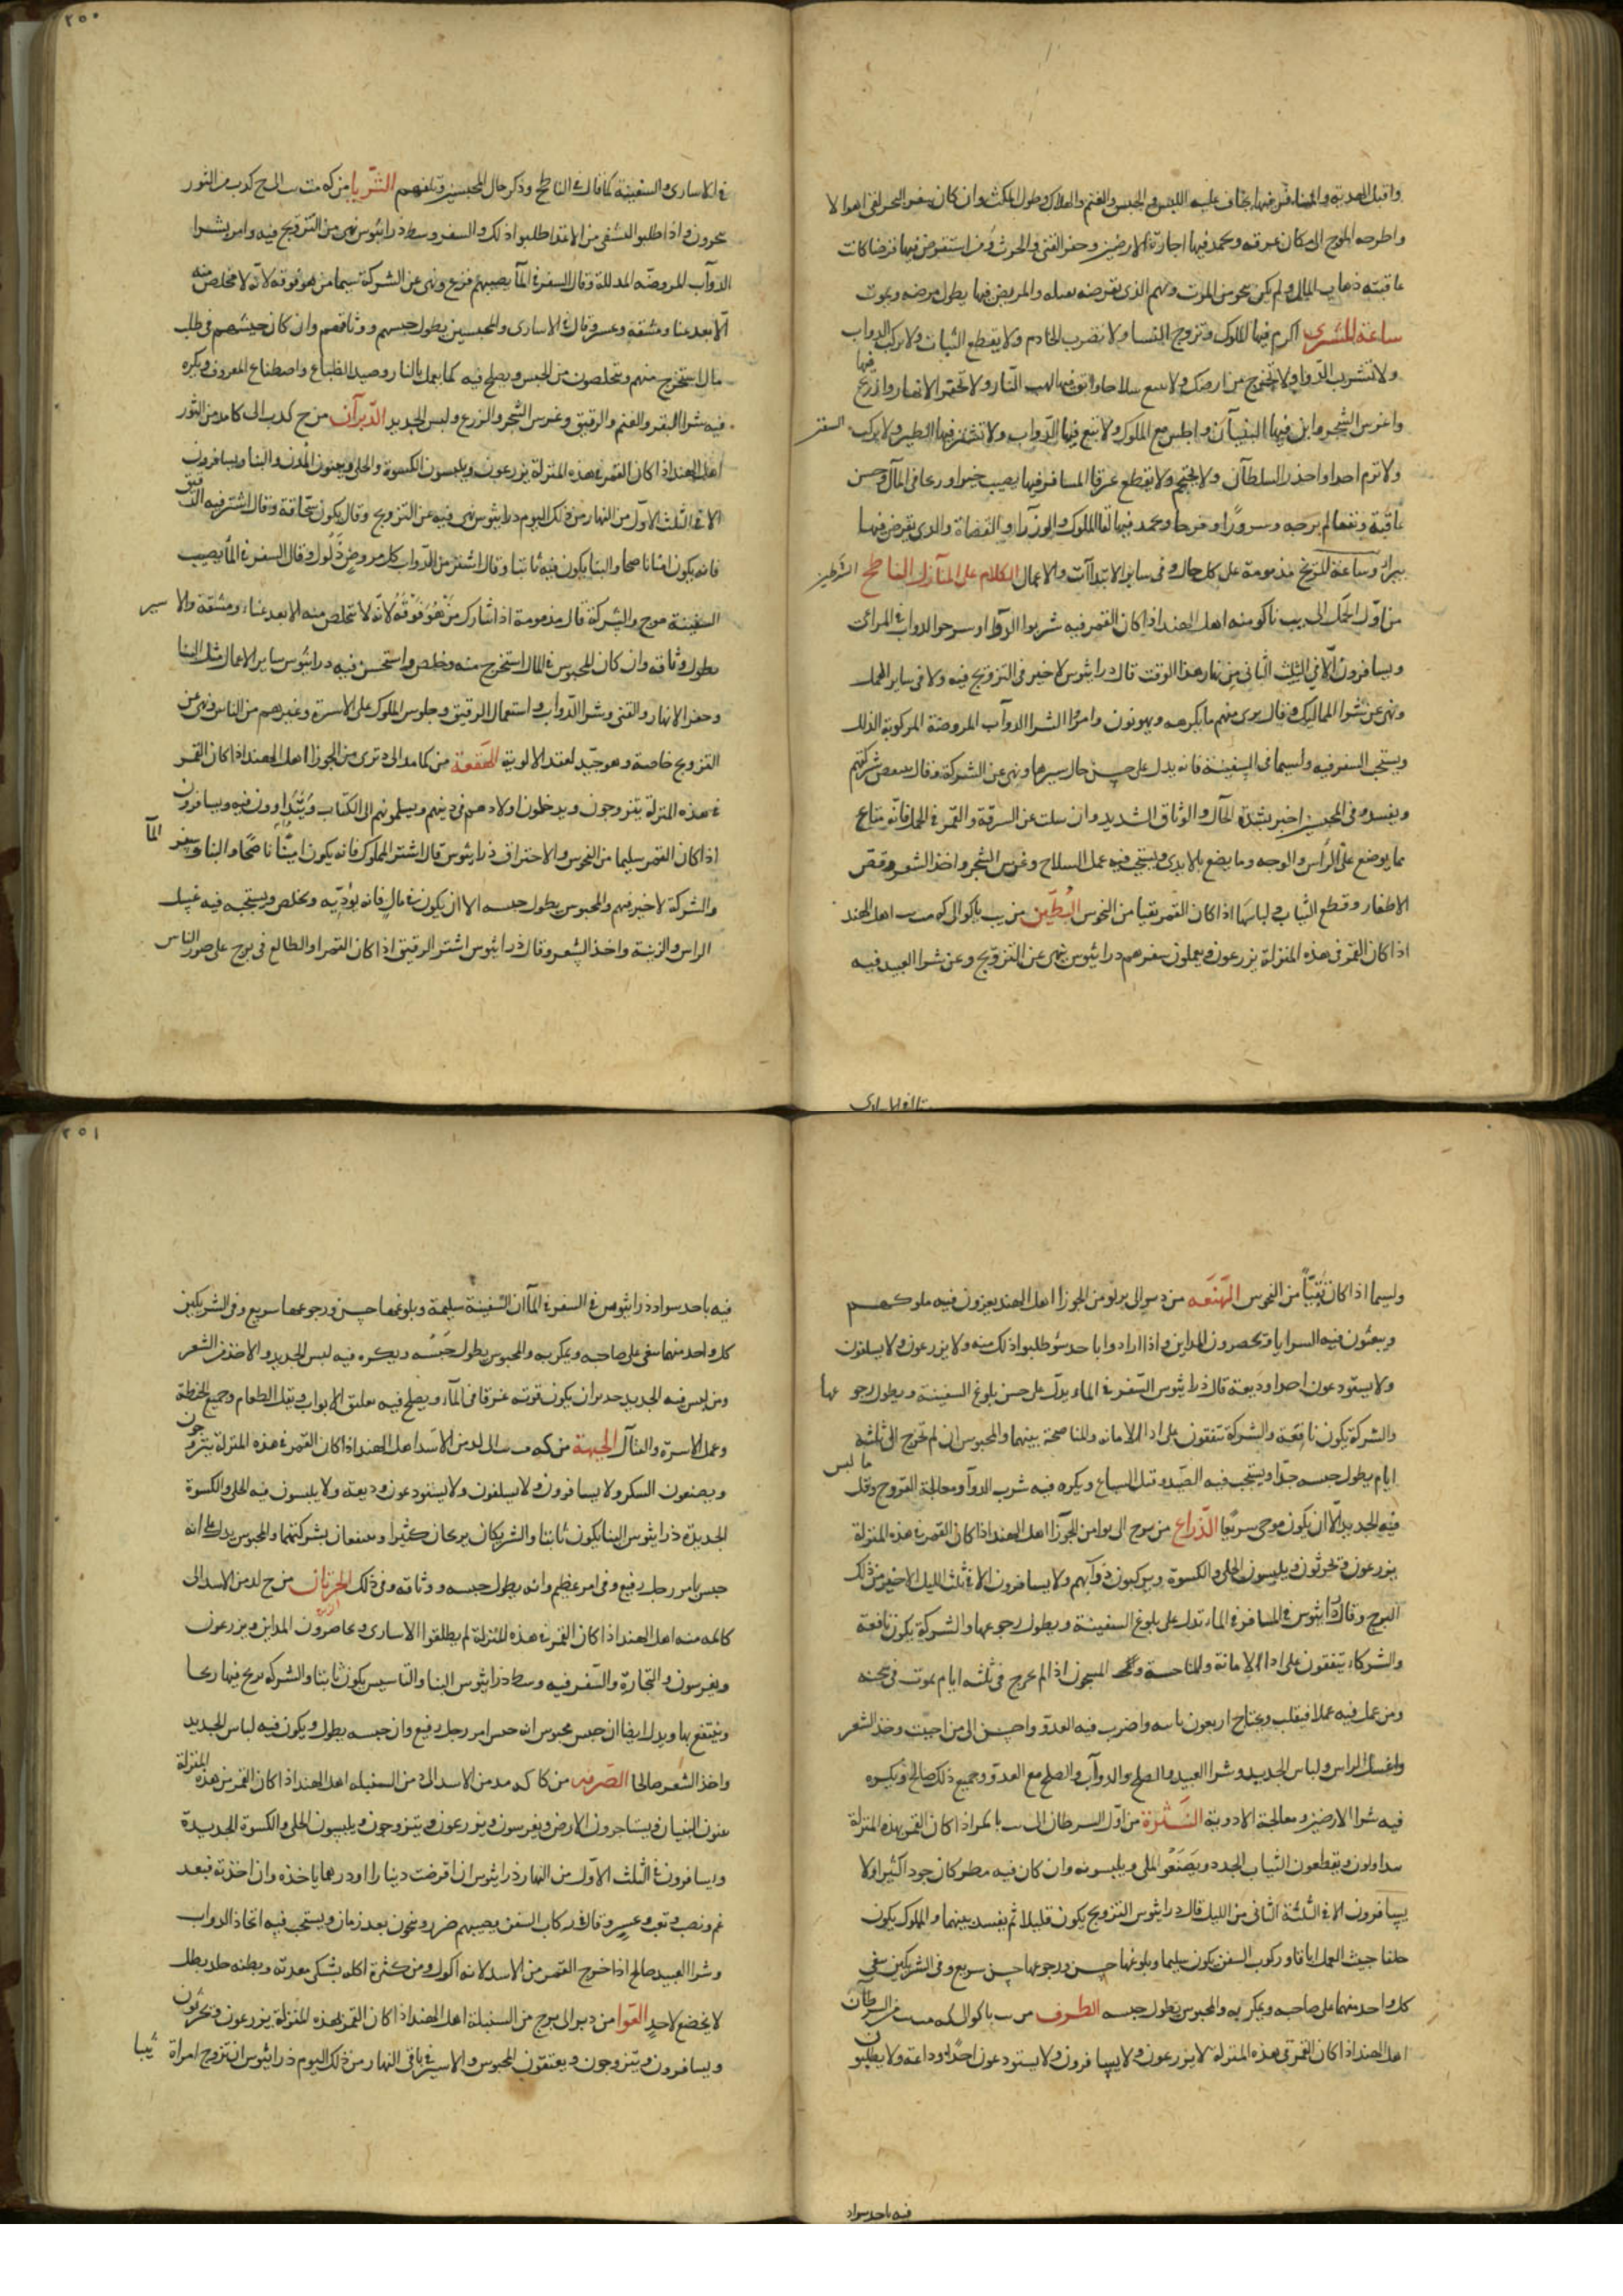 واقبل الهدية والبناء فمن فيها يخاف عليه اللبس والحبس والغم والهلاك وطول المكث وان كان سفر البحر لقي اهوالا
واطرحه الموج الى مكان غرقه ويحمد فيها اجارة الارضين وحفر القنى والحرث ومن استقرض فيها قرضا كانت
عاقبته ذهاب المال ولم يكن يجو من الموت وبهم الذي يقرضه بعمله والمريض فيها يطول مرضه ويموت
ساعة المشتري اكرم فيها الملوك وتزوج النسا ولا تضرب الخادم ولا يقطع الثياب ولا تركب الدواب
ولا تشرب الدواء ولا تخرج من ارضك ولا تبع سلاحا واتق فيها لهب النار ولا تحتفر الانهار وازرع فيها
واغرس الشجر وابن فيها البنيان واجلس مع الملوك ولا تبع فيها الدواب ولا تشتر فيها الطير ولا تركب السفن
ولا ترم احدا واحذر السلطان ولا يحتجم ولا يقطع عرقا المسافر فيها يصيب خيرا وربحا في المال وحسن
عاقبة ونفعا لم يرجه وسرورا وفرحا ويحمد فيها لقا الملوك والوزرا والقضاة والذي يقرض فيها
يبرأ وساعة المريخ مذمومة على كل حال وفى ساير الابتداآت والاعمال الكلام على المنازل الناطح الشرطين
من اول الحمل الى يب نا كو منه اهل الهند اذا كان القمر فيه شربوا الدوا وسرحوا الدواب في المراعى
ويسافرون الا في الثلث الثانى من نهار هذا الوقت قال دراثيوس لا خير فى التزويج فيه ولا فى ساير الحمل
ونهى عن شرا المماليك وقال يرى منهم ما يكرهه ويهربون وامروا الشرا الدوآب المروضة المركوبة الذلل
ويستحب السفر فيه ولسيما فى السفينة فانه يدل على حسن حال سيرها ونهى عن الشركة وقال ينقص شركتهم
ويفسد وفى المحبس اخبر بشدة الحال والوثاق الشديد وان سئلت عن السرقة والقمر في الحمل فانه متاع
مما يوضع على الرأس والوجه وما يصنع بالايدي ويستحب فيه عمل السلاح وغرس الشجر واخذ الشعر وقص
الاظفار وقطع الثياب ولباسها اذا كان القمر نقيا من النحوس البطين من يب نا كو الى كه مب اهل الهند
اذا كان القمر فى هذه المنزلة يزرعون ويعملون سفرهم دراثيوس نهى عن التزويج وعن شرا العبيد فيه
٢٥٠
في الاسارى والسفينة كما قال في الناطح وذكر حال المحبسين وتلفهم الثريا من كه مب الى ح كد من الثور
يحرون واذا طلبوا التشفى من الاعدا طلبوا ذلك والسفر وسط ذراثيوس نهى من التزويج فيه وامر بشرا
الدوآب المروضه المدللة وقال السفر في المآ يصيبهم فزع ونهى عن الشركة سيما من هو فوقه لانه لا مخلص منه
الا بعد عنا ومشقة وعسر وقال في الاسارى والمحبسين يطول حبسهم ووثاقهم وان كان حبسهم فى طلب
مال استخرج منهم ويتخلصون من الحبس ويصلح فيه كما يعمل بالنار وصيد الظباء واصطناع المعروف ويكره
فيه شرا البقر والغنم والرقيق وغرس الشجر والزرع ولبس الجديد الدبرآن من ح كد الى كا مد من الثور
اهل الهند اذا كان القمر في هذه المنزلة يزرعون ويلبسون الكسوة والحلى ويبنون المدن والبنا ويسافرون
الا في الثلث الاول من النهار من ذلك اليوم دراثيوس نهى فيه عن التزويج وقال يكون سحاقة وقال اشتر فيه الرقيق
فانه يكون امينا ناصحا والبنا يكون فيه ثابتا وقال اشتر من الدواب كل مروض ذلول وقال السفر في المآ يصيب
السفينة موج والشركة قال مذمومة اذا شارك من هو فوقه لانه لا يتخلص منه الا بعد عناء ومشقة والاسير
يطول وثاقه وان كان المحبوس في المال استخرج منه وخلص واستحسن فيه دراثيوس ساير الاعمال مثل البنا
وحفر الانهار والقنى وشرا الدواب واستعمال الرقيق وجلوس الملوك على الاسرة وغيرهم من الناس ونهى عن
التزويج خاصة وهو جيد لعقد الالوية الهقعة من كا مد الى د من الجوزا اهل الهند اذا كان القمر
في هذه المنزلة يتزوجون ويدخلون اولادهم فى دينهم ويسلمونهم الى الكتاب ويتداوون فيه ويسافرون
اذا كان القمر سليما من النحوس والاحتراق ذراثيوس قال اشتر المملوك فانه يكون امينا ناصحا والبنا وسفر المآ
والشركة لا خير فيهم والمحبوس يطول حبسه الا ان يكون في مال فانه يؤديه ويخلص ويستحب فيه غسل
الراس والزينة واخذ الشعر وقال ذراثيوس اشتر الرقيق اذا كان القمر او الطالع فى برج على صور الناس
ولسيما اذا كان نقيا من النحوس الهنعه من د الى من الجوزا اهل الهند يعزون فيه ملوكهم
ويبعثون فيه السرايا ويحصرون المداين واذا ارادوا باحد سو طلبوا ذلك منه ولا يزرعون ولا يسلفون
ولا يستودعون احدا وديعة قال ذراثيوس السفر في الماء يدل على حسن بلوغ السفينة ويطول رجوعها
والشركة يكون نافعة والشركة يتفقون على ادا الامانه والمناصحة بينهما والمحبوس ان لم يخرج الى ثلثة
ايام يطول حبسه جدا ويستحب فيه الصيد وقتل السباع ويكره فيه شرب الدوآ ومعالجة القروح وقل ما لبس
فيه الجديد الا ان يكون موحى سريعا الذراع من الى من الجوزآ اهل الهند اذا كان القمر في هذه المنزلة
يزرعون ويحرثون ويلبسون الحلى والكسوة ويركبون دوآبهم ولا يسافرون الا في ثلث الليل الاخير من ذلك
البرج وقال ذراثيوس في المسافر في الماء تدل على بلوغ السفينة ويطول رجوعها والشركة يكون نافعة
والشركاء يتفقون على ادا الامانة والمناصحة المسجون اذا لم يخرج فى ثلثه ايام يموت فى سجنه
ومن عمل فيه عملا فيقلب ويحتاج اربعون ناسه واضرب فيه العدو واحسن الى من احببت وخذ الشعر
واغسل الراس ولباس الجديد وشرا العبيد والصلح والدوآب والصلح مع العدو وجميع ذلك صالح ويكره
فيه شرا الارضين ومعالجة الادوية النثرة من اول السرطان الى اذا كان القمر بهذه المنزلة
يتداوون ويقطعون الثياب الجدد ويصنعوا الحلى ويلبسونه وان كان فيه مطر كان جودا كثيرا ولا
يسافرون الا في الثلثة الثانى من الليل قال دراثيوس التزويج يكون قليلا ثم يفسد بينهما والمملوك يكون
خلقا خبيث العمل اباقا وركوب السفن يكون سليما وبلوغها حسن ورجوعها حسن سريع وفى الشريكين يبغى
كل واحد منهما على صاحبه ويمكر به والمحبوس يطول حبسه الطرف من الى من السرطان
اهل الهند اذا كان القمر في هذه المنزلة لا يزرعون ولا يسافرون ولا يستودعون احدا وداعة ولا يطلبون
٢٥١
فيه باحد سوا ذراثيوس في السفر في المآ ان السفينة سليمة وبلوغها حسن ورجوعها سريع وفى الشريكين
كل واحد منهما يبغى على صاحبه ويمكر به والمحبوس يطول حبسه ويكره فيه لبس الجديد والاخذ من الشعر
ومن لبس فيه الجديد جدير ان يكون موته غرقا فى المآء ويصلح فيه تعليق الابواب ونقل الطعام وجميع الحنطة
وعمل الاسرة والفآل الجبهة من كه الى من الاسد اهل الهند اذا كان القمر في هذه المنزلة يتزوجون
ويصنعون السكر ولا يسافرون ولا يسلفون ولا يستودعون وديعة ولا يلبسون فيه الحلى والكسوة
الجديدة ذراثيوس البنا يكون ثابتا والشريكان يربحان كثيرا وينتفعان بشركتهما والمحبوس يدل على انه
حبس بامر رجل رفيع وفى امر عظيم وانه يطول حبسه ووثاقه وفى ذلك الخرتان من ح من الاسد الى
منه اهل الهند اذا كان القمر في هذه المنزلة لم يطلقوا الاسارى ويحاصرون المداين ويزرعون
ويغرسون والتجارة والسفر فيه وسط ذراثيوس البنا والتاسيس يكون ثابتا والشركه يربح فيها ربحا
وينتفع بها ويدل ايضا ان حبس محبوس انه حبس امر رجل رفيع وان حبسه يطول ويكون فيه لباس الجديد
واخذ الشعر صالحا الصرفه من الاسد الى من السنبله اهل الهند اذا كان القمر في هذه المنزلة
يبنون البنيان ويستاجرون الارض ويغرسون ويزرعون ويتزوجون ويلبسون الحلى والكسوة الجديدة
ويسافرون في الثلث الاول من النهار ذراثيوس ان اقرضت دينارا او درهما لم ياخذه وان اخذته فبعد
غم ونصب وتعب وعسر وقال في ركاب السفن يصيبهم ضرر وينجون بعد زمان ويستحب فيه اتخاذ الدواب
وشرا العبيد صالح اذا خرج القمر من الاسد لانه اكول ومن كثرة اكله يشتكى معدته وبطنه
لا يخضع لاحد العوا من الى من السنبلة اهل الهند اذا كان القمر بهذه المنزلة يزرعون ويحرثون
ويسافرون ويتزوجون ويعتقون المحبوس والاسير في باقى النهار من ذلك اليوم ذراثيوس ان تزوج امراة ثيبا
فيه باحد سوا